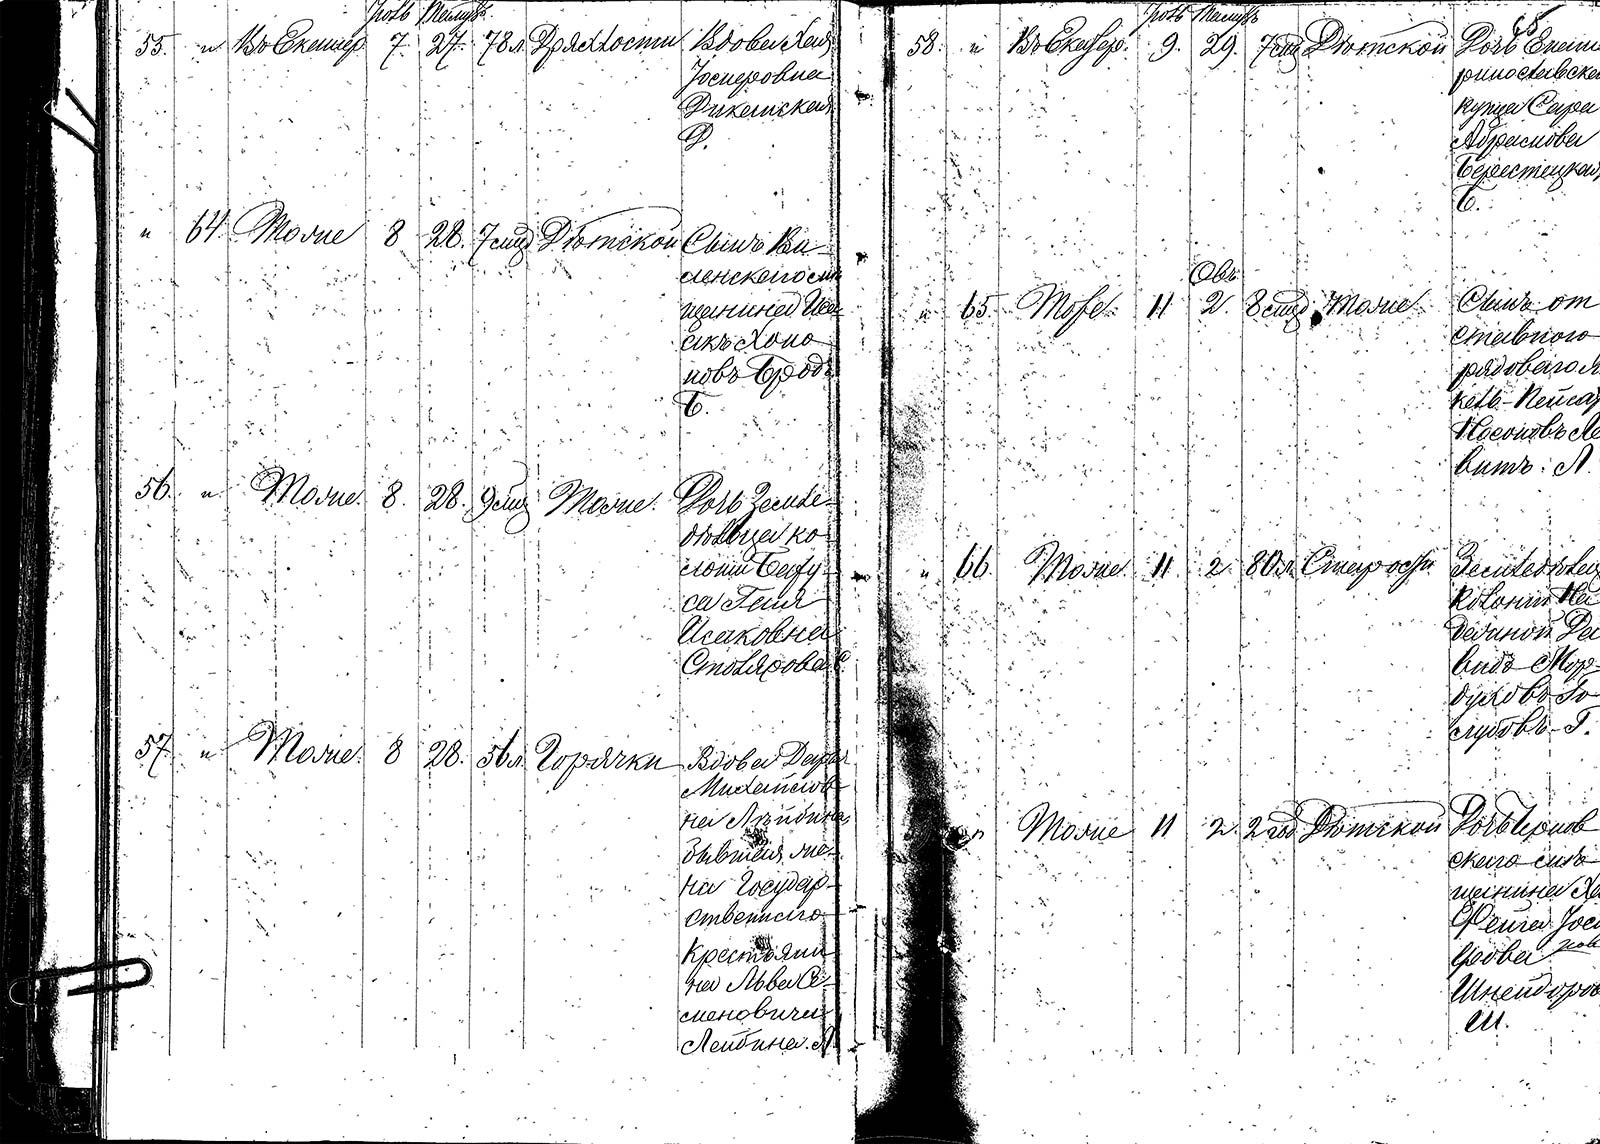 55. " Въ Екатер. 7. 27. 78 л. Дряхлости Вдова Хая
Іосиеровна
Д.
" 64. Тоже 8 28. 7 мц Дѣтской Сынъ Ви-
ленскаго мѣ
щанина Иса-
акъ Хоно
новъ Бродъ
Б.
56. " Тоже. 8. 28. 9 мц Тоже. Дочь Земле-
дѣльца ко-
лоніи
Исаковна
Столярова С.
57. " Тоже. 8 28. 56 л. Горячки Вдова Дарья
Михайлов-
на Лейбина,
бывшая же-
на Государ-
ственнаго
Крестьяни-
на Льва Се-
меновича
Лейбина. Л.
68
58. " Въ Екатер. 9. 29. 7 мц Дѣтской Дочь Екате
ринославска
купца Сара
Абрамова
Берестецкая,
Б.
Овъ
" 65. Тоже. 11 2. 8 мцъ Тоже Сынъ от
ставного
рядового Я
кель-Пейсах
Носоновъ Ле
витъ. Л.
" 66. Тоже. 11. 2. 80 л. Старости Земледѣлец
Колоніи На
дежной Да
видъ Мор-
духовъ Го-
лубовъ-Г.
Тоже 11 2. 2 год Дѣтской Дочь
скаго мѣ-
щанина Ха
Фейга Іоси
фова
Шнейдоров
Ш.